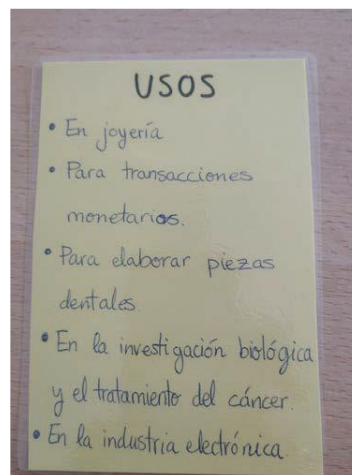 USOS
• En joyería
• Para transacciones
monetarias.
• Para elaborar piezas
dentales.
• En la investigación biológica
y el tratamiento del cáncer.
• En la industria electrónica.